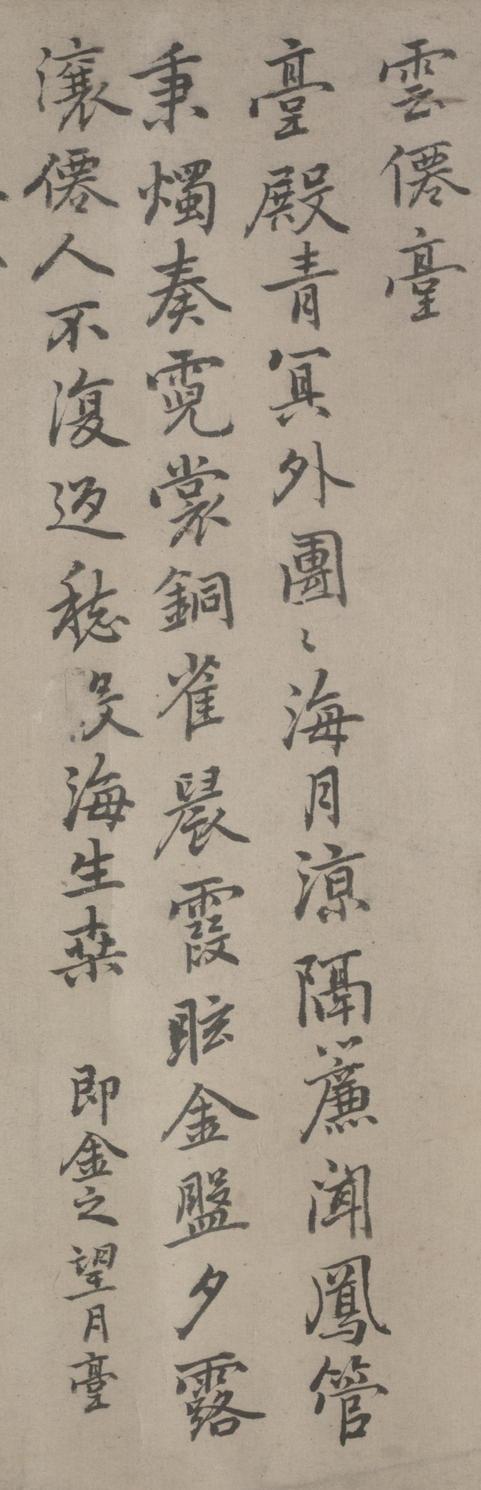 雲僊臺
臺殿青冥外團〻海月涼隔簾聞鳳管
秉燭奏霓裳銅雀晨霞眩金盤夕露
瀼僊人不復返沒海生桑 即金之望月臺